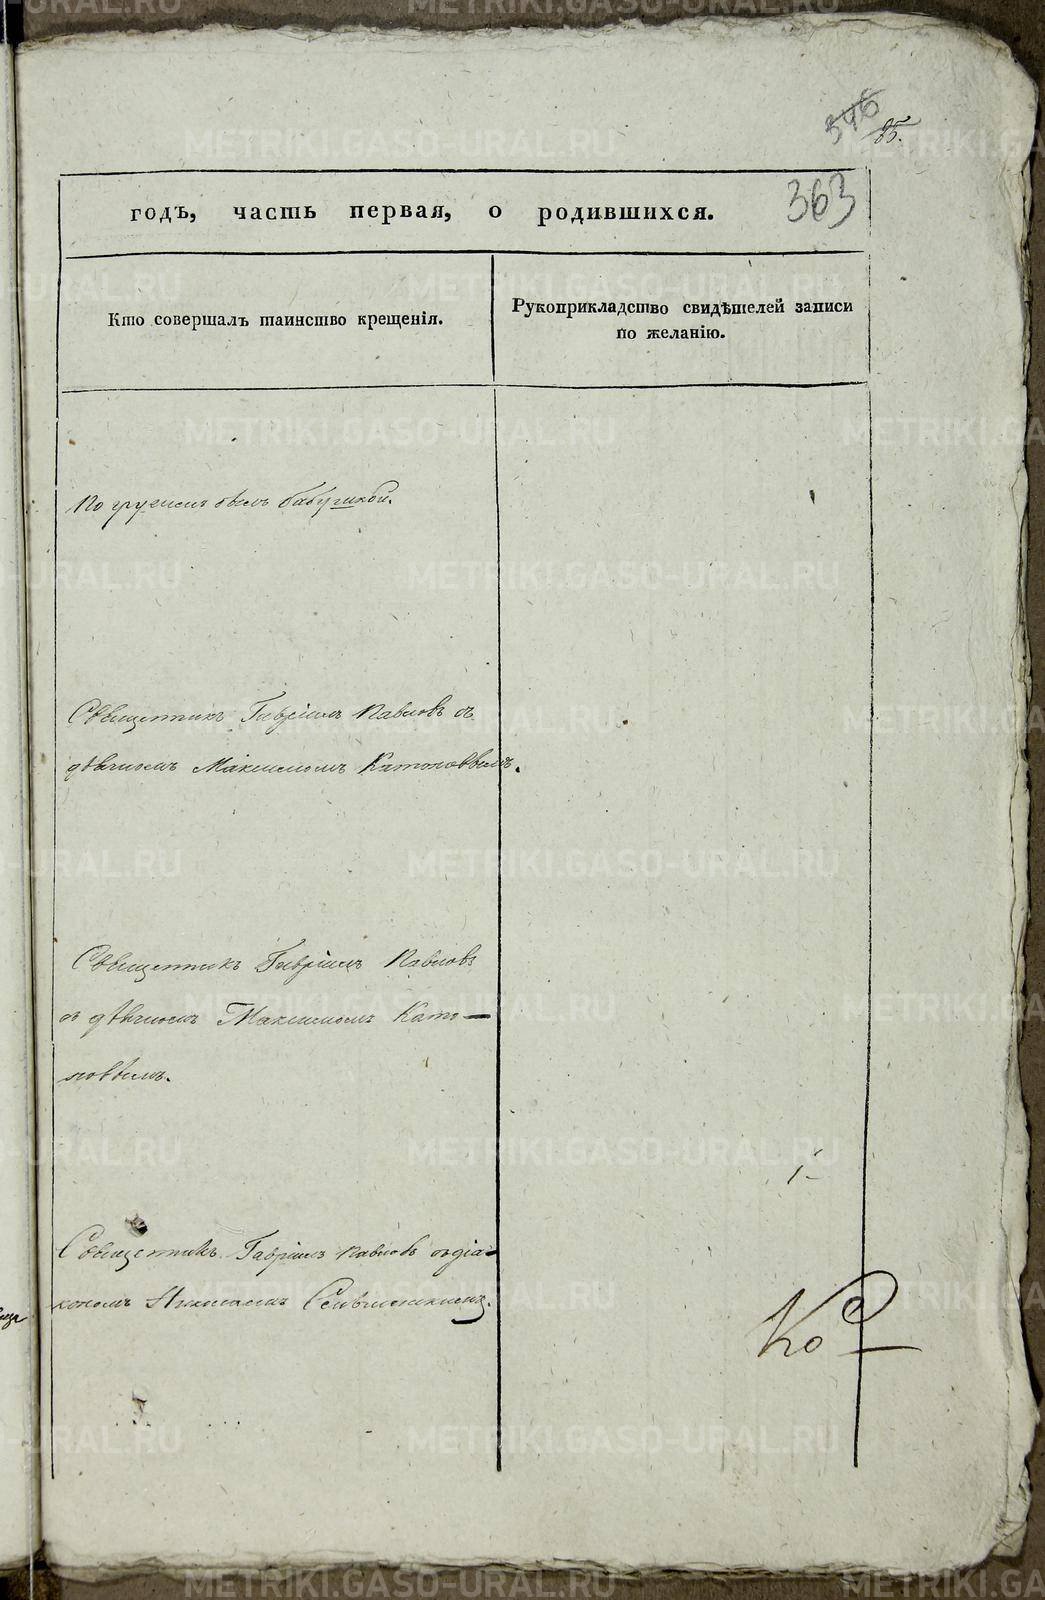 546
85.
363
годъ, часть первая, о родившихся.
Кто совершалъ таинство крещенія.
Рукоприкладство свидѣтелей записи
по желанію.
Погруженъ былъ бабушкой.
Священникъ Гавріилъ Павловъ съ
дьячкомъ Максимомъ
Священникъ Гавріилъ Павловъ
съ дьячкомъ Максимомъ
Священникъ Гавріилъ Павловъ съ діа-
кономъ
METRIKI.GASO-URAL.RU